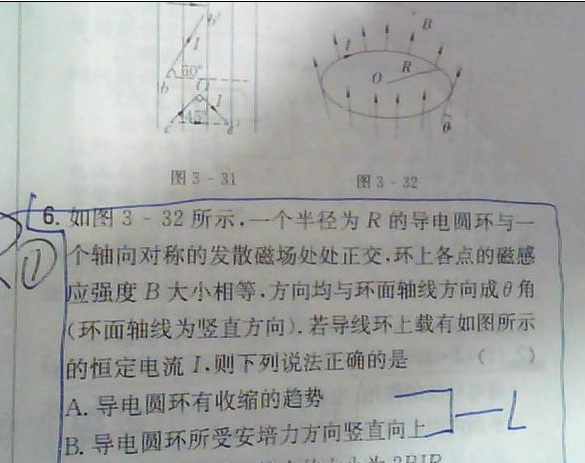 b'
I
60°
b
O
I
45°
c
c'
图 3 - 31
I
B
R
O
θ
图 3 - 32
①
6. 如图 3 - 32 所示,一个半径为 R 的导电圆环与一
个轴向对称的发散磁场处处正交,环上各点的磁感
应强度 B 大小相等,方向均与环面轴线方向成 θ 角
(环面轴线为竖直方向). 若导线环上载有如图所示
的恒定电流 I,则下列说法正确的是 ( )
A. 导电圆环有收缩的趋势
B. 导电圆环所受安培力方向竖直向上